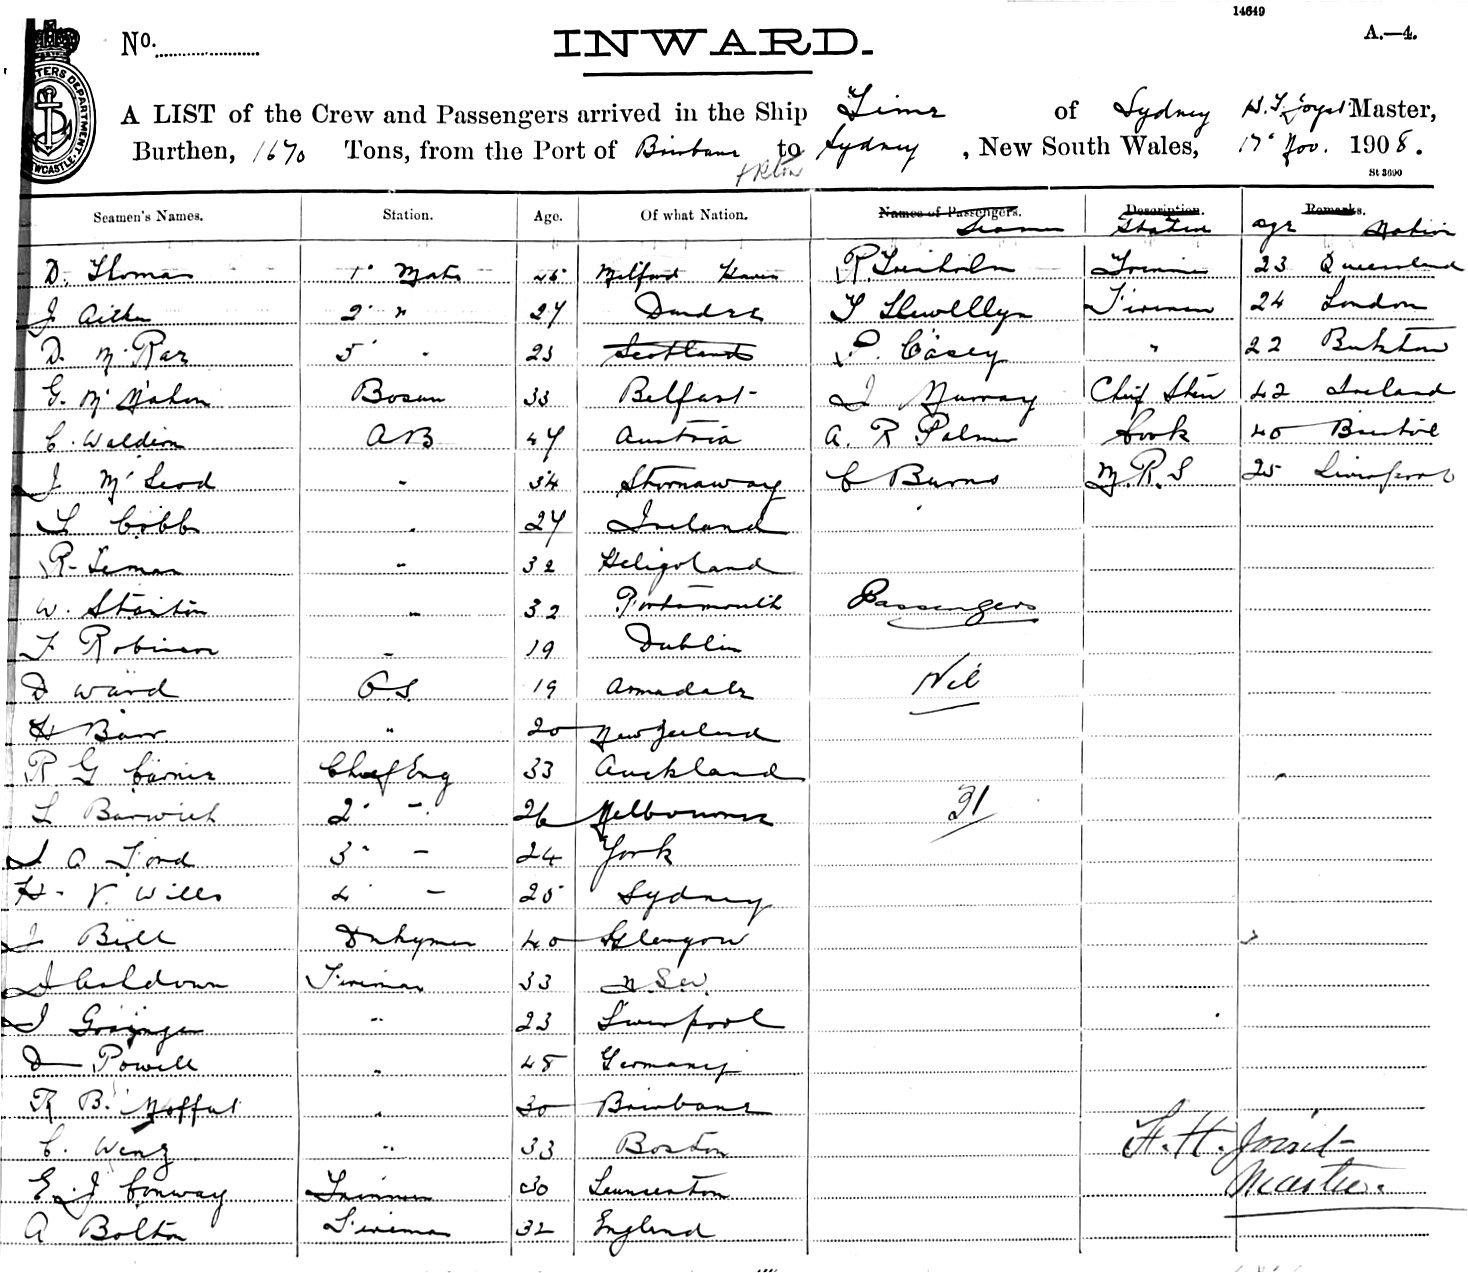 14649
No.
INWARD.
A.—4.
A LIST of the Crew and Passengers arrived in the Ship Time of Sydney Master,
Burthen, 1670 Tons, from the Port of Brisbane to Sydney, New South Wales, 17 Nov. 1908.
St 3690
Seamen's Names. Station. Age. Of what Nation. Names of Passengers. Description. Remarks.
Seamen Station age Nation
D. Thomas 1 Mate Milford Haven R. Trinholm Trimmer 23 Queensland
J. Aitken 2 " 27 Dundee T Llewellyn Fireman 24 London
D. McRae 3 " 23 Scotland P. Casey " 22
G. McMahon Bosun 33 Belfast J Murray Chief Stew 42 Ireland
C. AB 47 Austria A. R Palmer Cook 40 Bristol
J McLeod " 34 Stornaway C Burns M.R.S 25 Liverpool
Cobb " 27 Ireland
R. Leman " 32 Heligoland
W. " 32 Portsmouth Passengers
F Robinson " 19 Dublin
D Ward O.S. 19 Armadale Nil
H Barr " 20 New Zealand
R G Chief Eng 33 Auckland
L Barwick 2 " 26 Melbourne 31
J A Ford 3 " 24 York
H. V. Wills 4 " 25 Sydney
J Bell Dnkyman 40 Glasgow
J Caldown Fireman 33 N.S.W.
J Grainger " 23 Liverpool
D Powell " 48 Germany
R B. Moffat " 30 Brisbane
C. Wenz " 33 Boston
F. H. Joint
Master.
E. J Conway Trimmer 30 Launceston
A Bolton Fireman 32 England